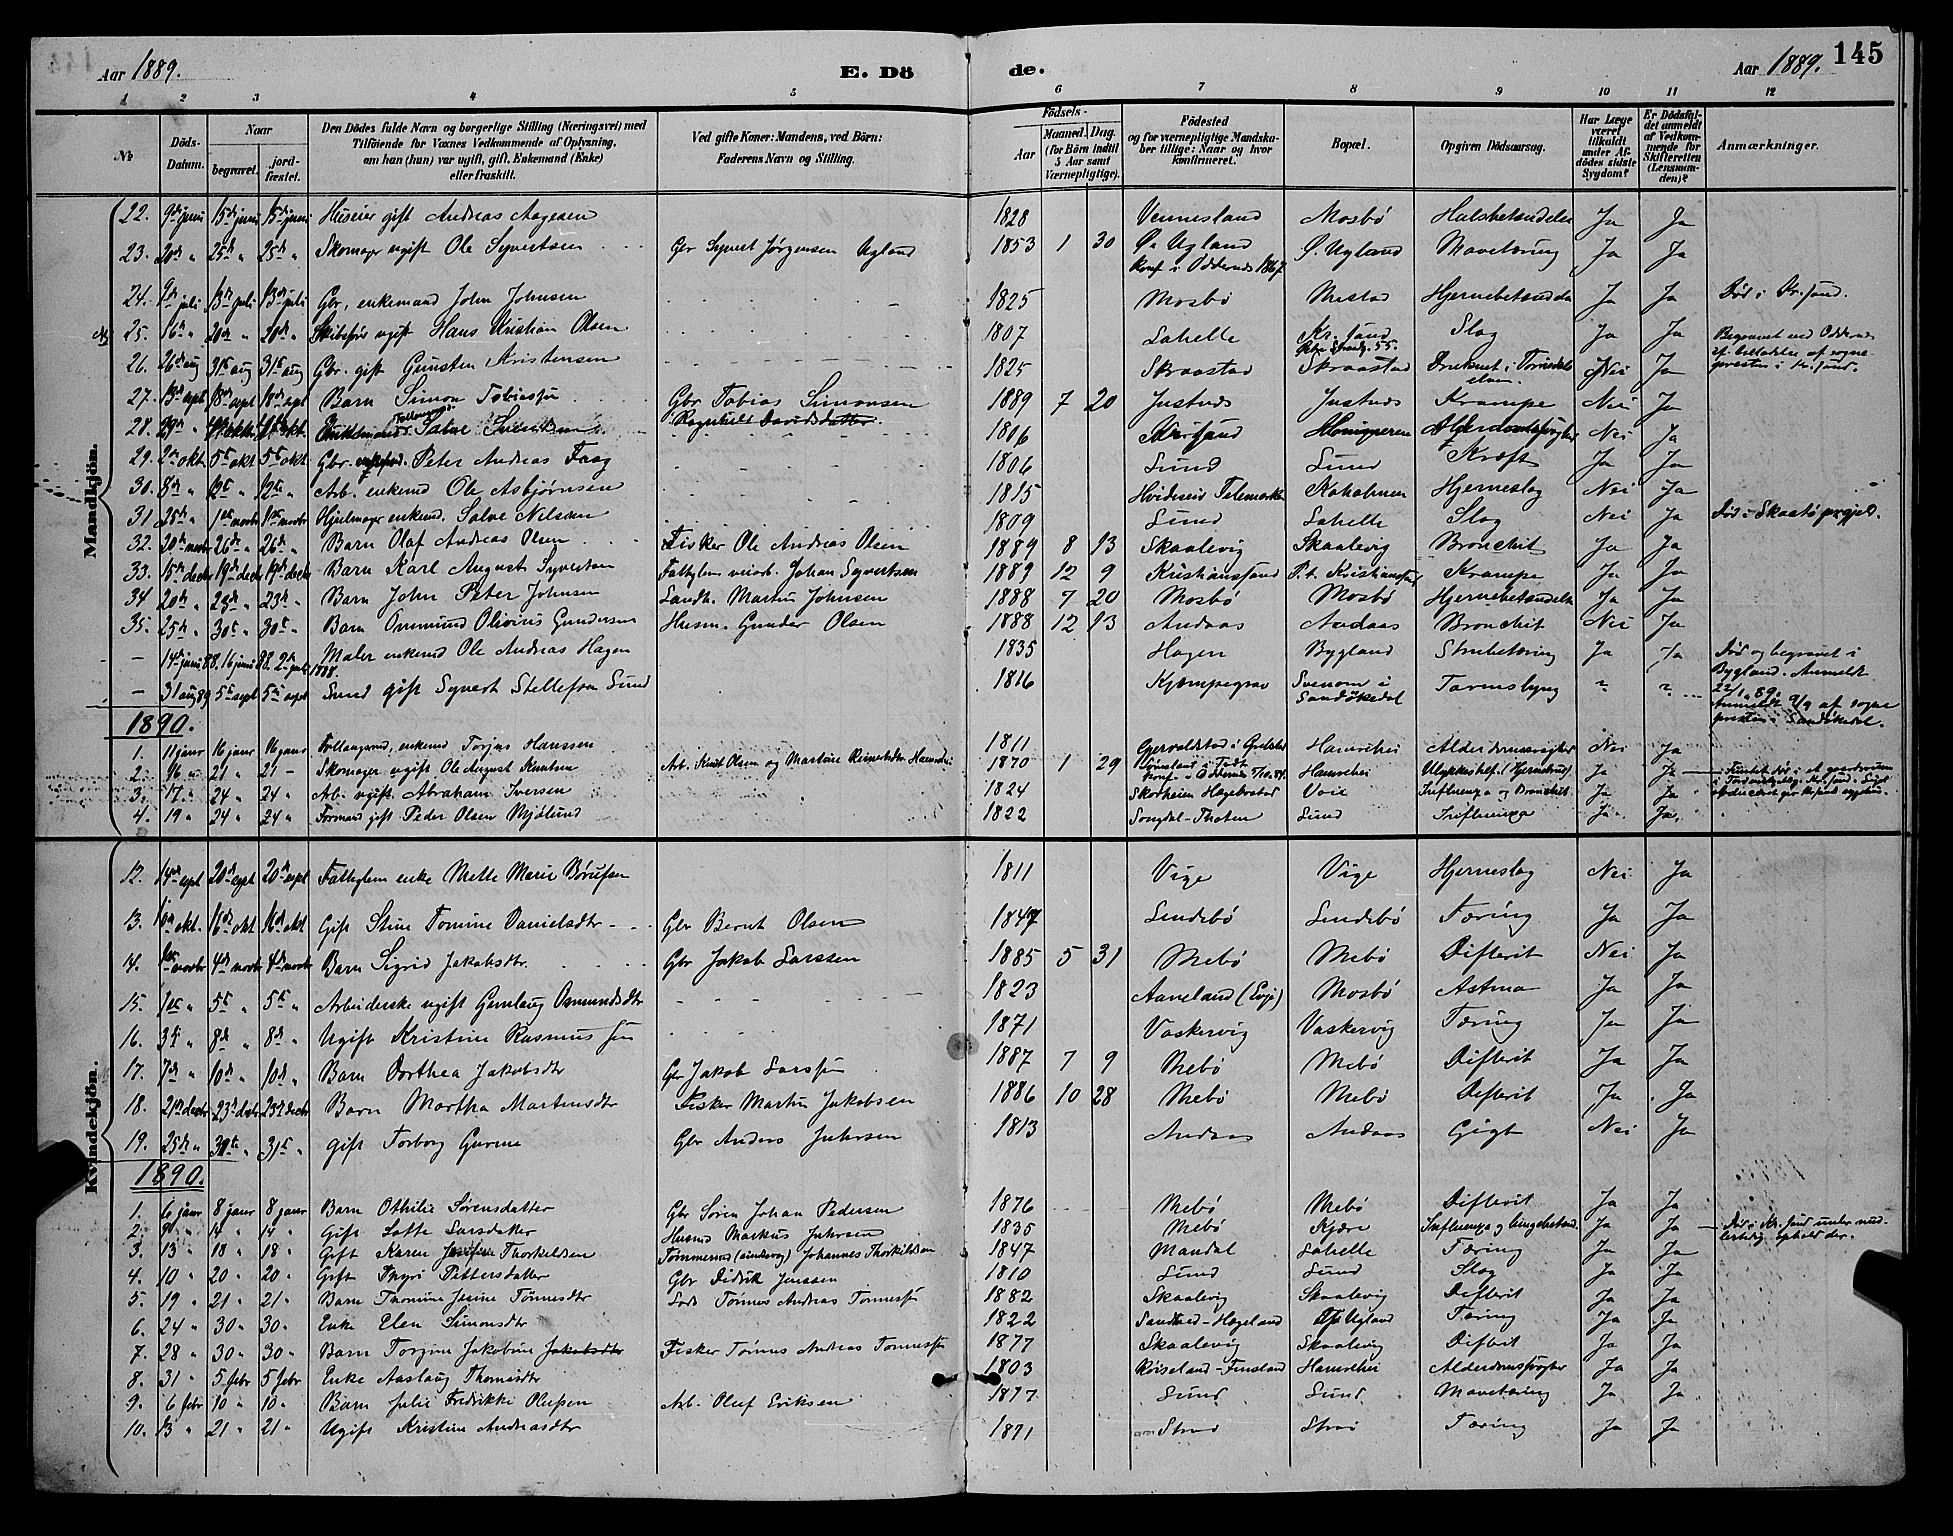 Aar 1889. E. Dö de. Aar 1889. 145
1 2 3 4 5 6 7 8 9 10 11 12
No Döds-Datum. Naar begravet. jord-fæstet. Den Dödes fulde Navn og borgerlige Stilling (Næringsvei) med Tilföiende for Voxnes Vedkommende af Oplysning, om han (hun) var ugift, gift, Enkemand (Enke) eller fraskilt. Ved gifte Koner: Mandens, ved Börn: Faderens Navn og Stilling. Födsels- Aar Maaned. Dag. (for Börn indtil 5 Aar samt Værnepligtige). Födested og for værnepligtige Mandskaber tillige: Naar og hvor konfirmeret. Bopæl. Opgiven Dödsaarsag. Har Læge været tilkaldt under Afdödes sidste Sygdom? Er Dödsfaldet anmeldt af Vedkommende for Skifteretten (Lensmanden)? Anmærkninger.
Mandkjön.
22. 9de juni 15de juni 15de juni Huseier gift Andreas Aagesen 1828 Vennesland Mosbö Halsbetændelse Ja Ja
23. 20de " 25de " 25de " Skomager ugift Ole Syvertsen Gbr Syvert Jørgensen Ugland 1853 1 30 Ø. Ugland Ø. Ugland Mavetæring Ja Ja
Konf i Oddernes 1867
24. juli 13de juli 13de juli Gbr. enkemand John Johnsen 1825 Mosbö Hjernebetændelse Ja Ja Död i Kr.sand.
25. 16de " 20de " 20de " ugift Hans Kristian Olsen 1807 Lahelle Kr. sand Slag Ja Ja Begravet ved Oddernes
26. 26de aug 31te aug 31te aug Gbr. gift Gunsten Kristensen 1825 Skraastad Skraastad Druknet i Nei Ja
27. 13de sept 18de sept 18de sept Barn Simon Tobiassen Gbr Tobias Simonsen 1889 7 20 Justnes Justnes Krampe Nei Ja
28. 29de " Salve Ragnhild Davidsdatter. 1816 Nei Ja
29. 2den okt 5te okt 5te okt Gbr. Peter Andreas Faag 1806 Lund Lund Kræft Ja Ja
30. 8de " 12te " 12te " Arb. enkemd Ole Asbjørnsen 1815 Hvideseid Telemarken Kaholmen Hjerneslag Nei Ja
31 25de " 1ste novbr 1ste novbr Hjulmager enkemd. Salve Nilsen 1809 Lund Lahelle Slag Nei Ja Död i Skaatö prgjeld.
32. 20de novbr 26de " 26de " Barn Olaf Andreas Olsen Fisker Ole Andreas Olsen 1889 8 13 Skaalevig Skaalevig Bronchit Ja Ja
33. 15de decbr 19de decbr 19de decbr Barn Karl August Syvertsen Fattiglem veiarb. Johan Syvertsen 1889 12 9 Kristianssand P.t. Kristianssand Krampe Ja Ja
34 20de " 23de " 23de " Barn John Peter Johnsen Landh. Martin Johnsen 1888 7 20 Mosbö Mosbö Hjernebetændelse Ja Ja
35. 25de " 30te " 30te " Barn Ommund Gundersen Husm. Gunder Olsen 1888 12 13 Andaas Andaas Bronchit Nei Ja
– 14de juni 88. 16 juni 88. Maler enkemd Ole Andreas Hagen 1835 Hagen Bygland Strubetæring Ja Ja Död og begravet i
Bygland. Anmeldt
22/1 89.
– 31 aug 89 5te sept 5te sept gift Syvert Stellefsen Lund 1816 Kjæmpegrav Svenom i Sandökedal ? ? Anmeldt 9/9 af sogne
presten i Sandökedal.
1890.
1. 11 janr 16 janr 16 janr enkemd Torjus Hanssen 1811 Hamrehei Alderdomssvaghed Nei Ja
2. 16 " 21 " 21 – Skomager ugift Ole August Knutsen Arb. Knut Olsen og Martine 1870 1 29 Hamrehei Ja Ja
3. 17 " 24 " 24 " Arb. ugift Abraham Iversen 1824 Skorheien Hægebostad Voie Influenza og Bronchit Ja Ja
4. 19 " 24 " 24 " Formand gift Peder Olsen Mjölund 1822 Lund Influenza Ja Ja.
Kvindekjön.
12. 14de sept 20de sept 20de sept Fattiglem enke Mette Marie Börufsen 1811 Vige Vige Hjerneslag Nei Ja
13. okt. 16de okt 16de okt Gift Stine Tomine Danielsdtr Gbr Bernt Olsen 1847 Lindebö Lindebö Tæring Ja Ja
14. 1ste novbr 4de novbr 4de novbr Barn Sigrid Jakobsdtr Gbr Jakob Larssen 1885 5 31 Mebö Mebö Difterit Nei Ja
15. 1ste " 5te " 5te " Arbiderske ugift Gunlaug Osmundsdtr 1823 Aaneland (Evje) Mosbö Astma Ja Ja
16. 3die " 8de " 8de " Ugift Kristine Rasmussen 1871 Vaskervig Vaskervig Tæring Ja Ja
17. 7de " 10de " 10de " Barn Dorthea Jakobsdtr Gbr Jakob Larssen 1887 7 9 Mebö Mebö Difterit Ja Ja
18. 21de decbr 23de decbr 23de decbr Barn Martha Martinsdtr Fisker Martin Jakobsen 1886 10 28 Mebö Mebö Difterit Ja Ja
19. 25de " 31te " 31te " gift Torborg Gurine Gbr Anders Juhrsen 1813 Andaas Andaas Gigt Nei Ja
1890.
1. 6 janr 8 janr 8 janr Barn Othilie Sörensdatter Gbr Sören Johan Pedersen 1876 Mebö Mebö Difterit Ja Ja
2. 9 " 14 " 14 " Gift Lotte Larsdatter Husmd Markus Juhrsen 1835 Mebö Kjære Influenza og lungebetænd. Ja Ja Död i Kr. sand under mid-
lertidig ophold der.
3. 13 " 18 " 18 " Gift Karen Thorkildsen Tömmermd Johannes Thorkildsen 1847 Mandal Lahelle Tæring Ja Ja
4. 10 " 20 " 20 " Gift Pettersdatter Gbr Didrik Jenssen 1810 Lund Lund Slag Ja Ja
5. 19 " 21 " 21 " Barn Thomine Jesine Tönnesdtr Lods Tönnes Andreas Tönnessen 1882 Skaalevig Skaalevig Difterit Ja Ja
6. 24 " 30 " 30 " Enke Elen Simonsdtr 1822 Hægeland Ugland Tæring Ja Ja
7. 28 " 30 " 30 " Barn Torgine Jakobine Jakobsdtr Fisker Tönnes Andreas Tönnessen 1877 Skaalevig Skaalevig Difterit Ja Ja
8. 31 " 5 febr 5 febr Enke Aaslaug Thomasdtr 1803 Röiseland – Finsland Hamrehei Alderdomssvaghed Ja Ja
9. 6 febr 10 " 10 " Barn Julie Fredrikke Olufsen Arb. Oluf Eriksen 1877 Lund Lund Mavetæring Ja Ja
10. 13 " 21 " 21 " Ugift Kristine Andreasdtr 1871 Strai Strai Tæring Ja Ja